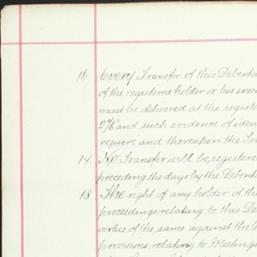 16 Every Transfer of this Debent
of the registered holder or his exec
must be delivered at the registe
2/6 and such evidence of iden
require and thereupon the Tra
17 No Transfer will be registered
preceding the days by the Debent
18 The right of any holder of this
proceedings relating to this De
virtue of the same against the
provisions relating to Meetings